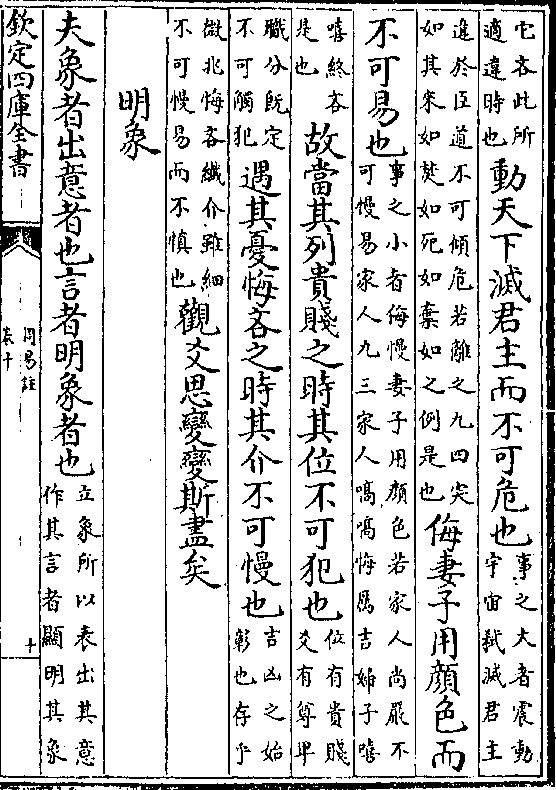 它吝此所
適違時也
動天下滅君主而不可危也
事之大者震動
宇宙弑滅君主
違於臣道不可傾危若離之九四突
如其來如焚如死如棄如之例是也
侮妻子用顔色而
不可易也
事之小者侮慢妻子用顔色若家人尚嚴不
可慢易家人九三家人嗃嗃悔厲吉婦子嘻
嘻終吝
是也
故當其列貴賤之時其位不可犯也
位有貴賤
爻有尊卑
職分既定
不可觸犯
遇其憂悔吝之時其介不可慢也
吉凶之始
彰也存乎
微兆悔吝纎介雖細
不可慢易而不慎也
觀爻思變變斯盡矣
明象
夫象者出意者也言者明象者也
立象所以表出其意
作其言者顯明其象
欽定四庫全書
周易註
卷十
十